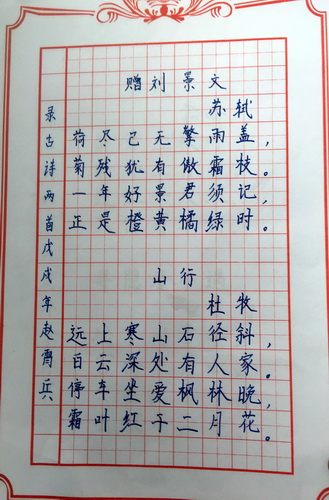 赠刘景文
苏轼
荷尽已无擎雨盖，
菊残犹有傲霜枝。
一年好景君须记，
正是橙黄橘绿时。
山行
杜牧
远上寒山石径斜，
白云深处有人家。
停车坐爱枫林晚，
霜叶红于二月花。
录古诗两首戊戌年赵霄兵